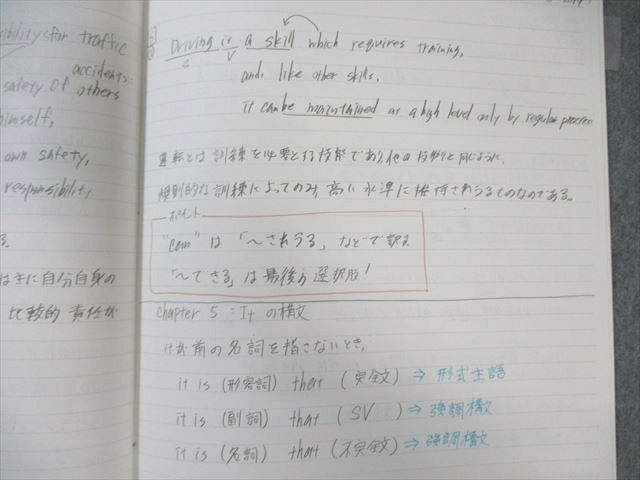 sibility for traffic
accidents
safety of others
himself,
own safety,
responsibility
る。
は主に自分自身の
比較的 責任が
Driving is a skill which requires training,
S V
and, like other skills,
it can be maintained at a high level only by regular practice
運転とは 訓練を必要とする技能であり、他の技能と同じように、
規則的な訓練によってのみ、高い水準に維持されうるものなのである。
ポイント
"can" は「~されうる」などで訳す
「~できる」は最後の選択肢!
chapter 5 : It の構文
itが前の名詞を指さないとき,
it is (形容詞) that (完全文) ⇒ 形式主語
it is (副詞) that (SV) ⇒ 強調構文
it is (名詞) that (不完全文) ⇒ 強調構文